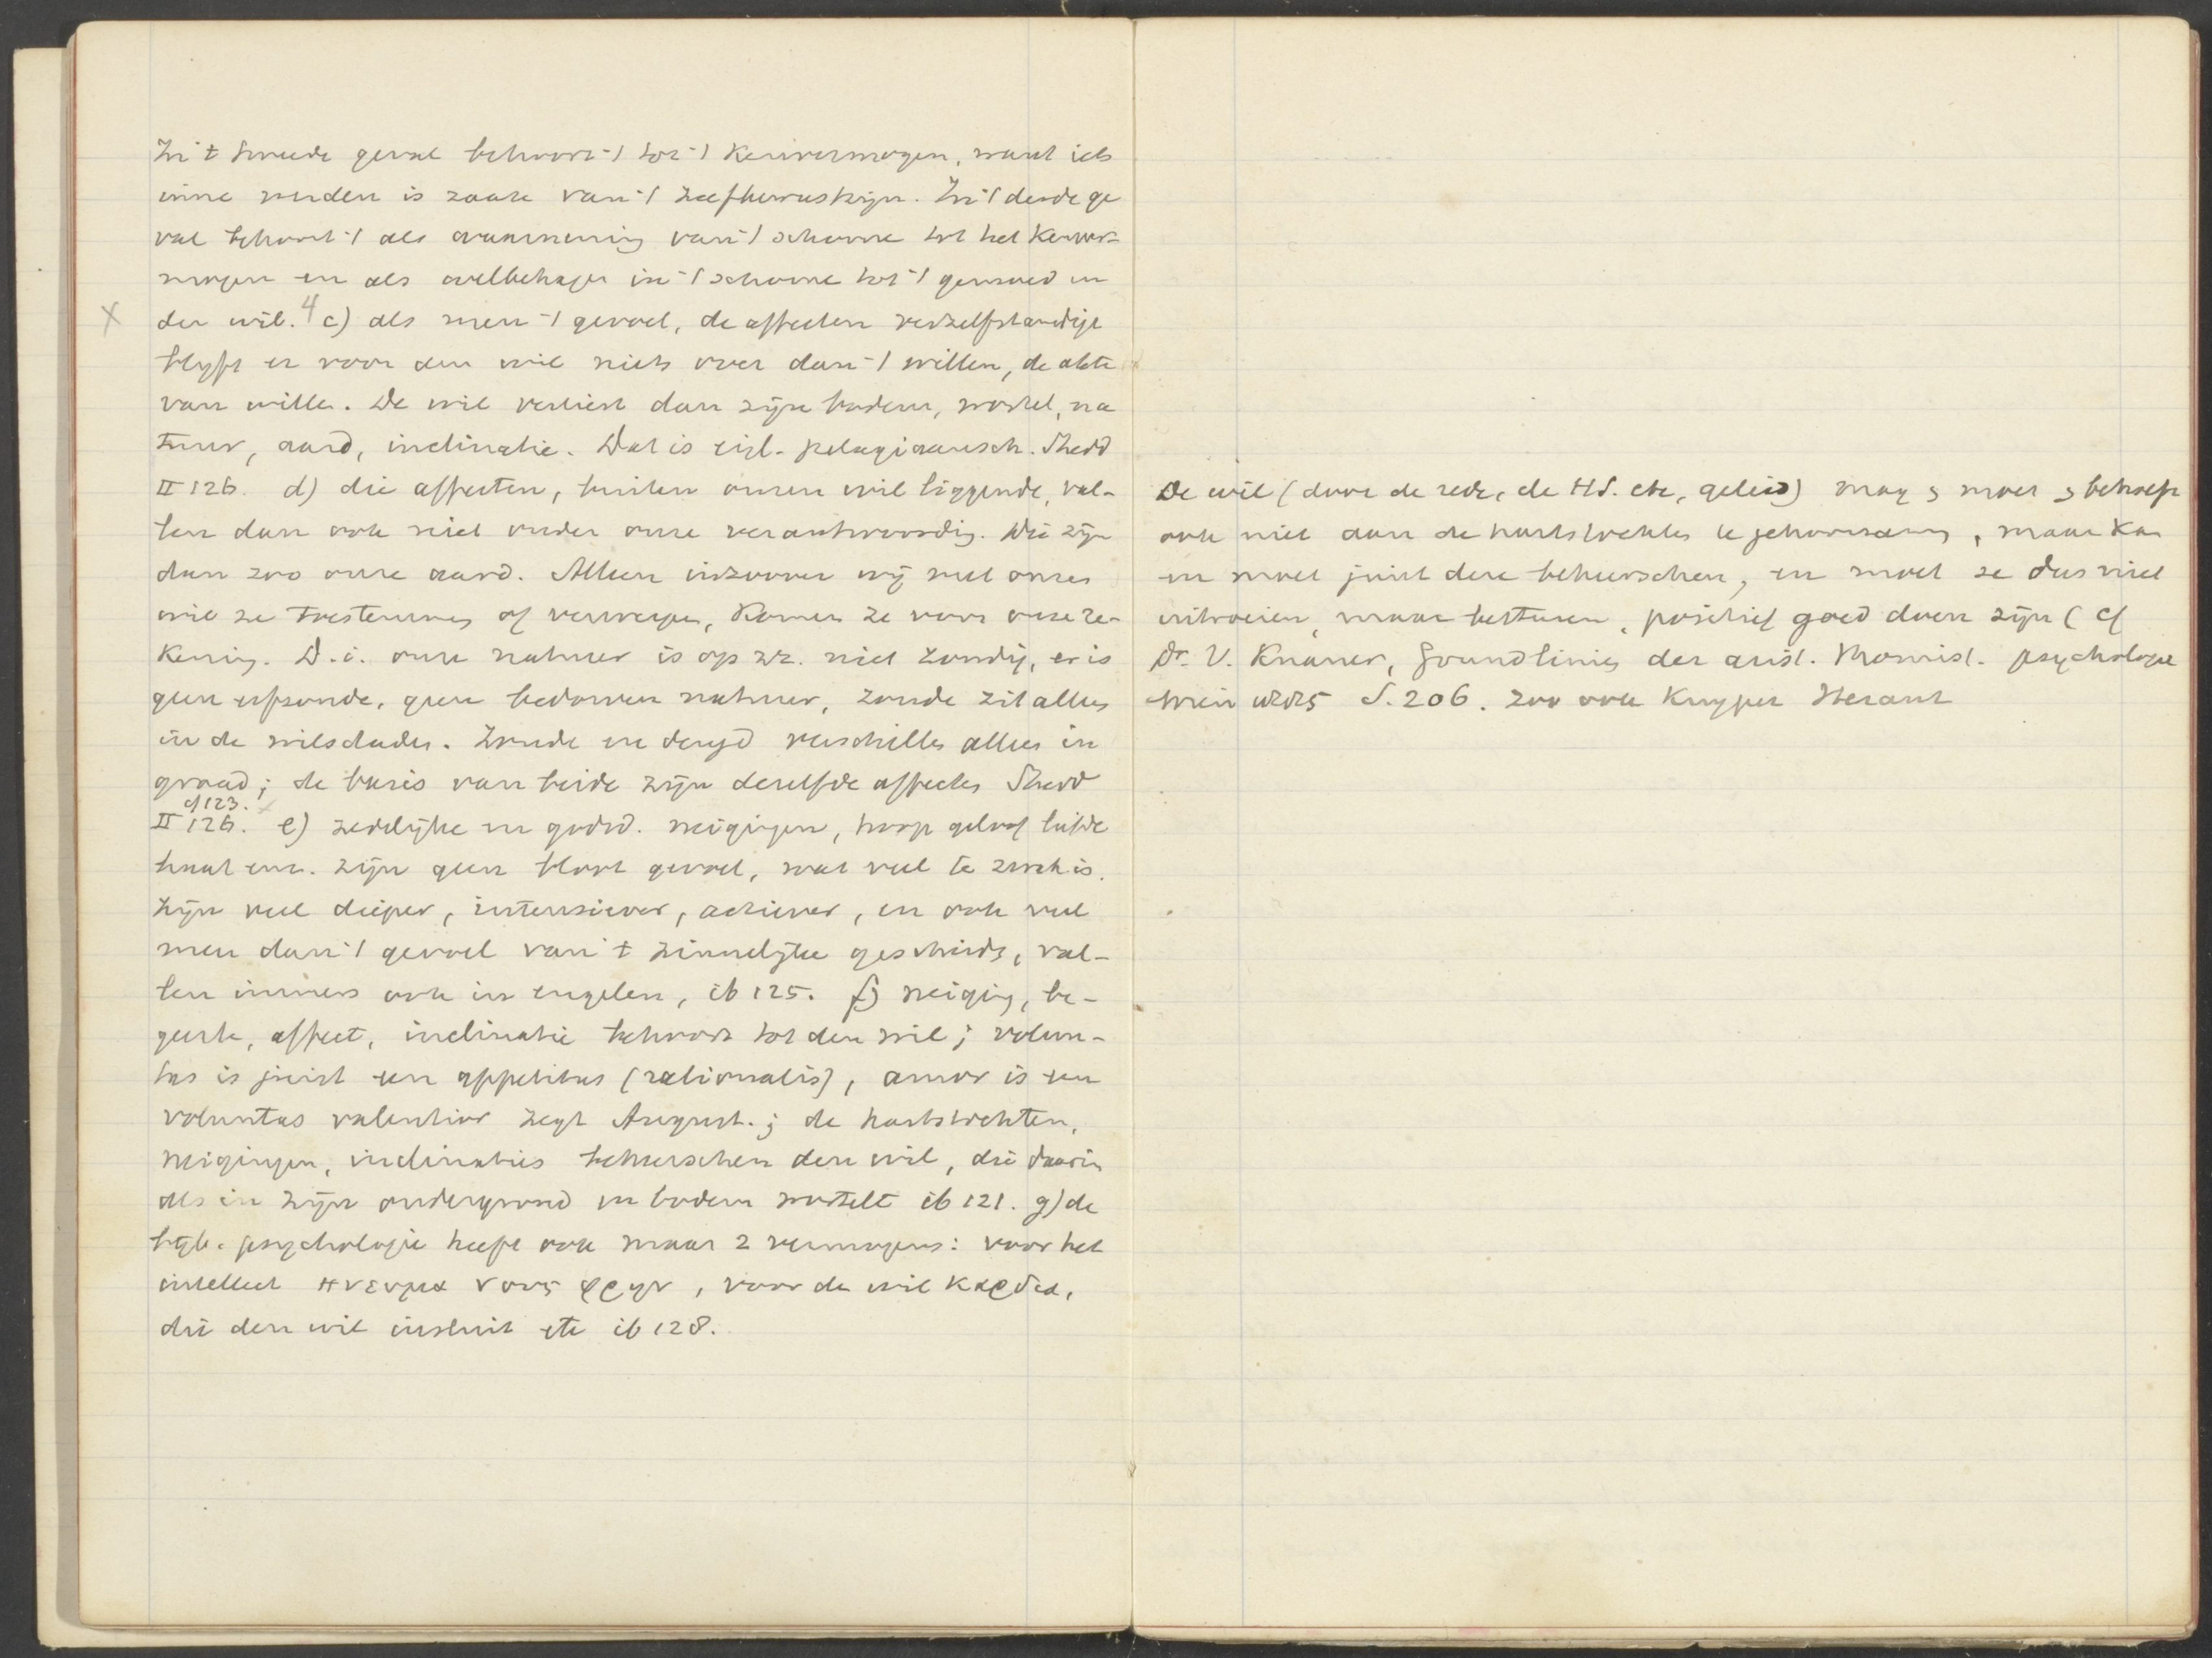 In 't tweede geval behoort 't tot 't Kenvermogen, want iets
inne worden is zaak van 't zelfbewustzijn. In 't derde ge
val behoort 't als waarneming van 't schoone tot het Kenver-
mogen en als welbehagen in 't schoone tot 't gemoed en
X den wil. 4 c) als men 't gevoel, de affecten verzelfstandigt
blyft er voor den wil niets over dan 't willen, de akte
van willen. De wil verliest dan zijn bodem, wortel, na
tuur, aard, inclinatie. Dat is eigl. pelagiaansch. Shedd
II 126. d) die affecten, buiten onzen wil liggende, val-
len dan ook niet onder onze verantwoordig. Wie zijn
dan zoo onze aard. Alleen inzoover wij met onzen
wil ze toestemmen of verwerpen, komen ze voor onze re-
kening. D.i. onze natuur is op zz. niet zondig, er is
geen erfzonde, geen bedorven natuur, zonde zit alleen
in de wilsdaden. Zonde en deugd verschillen alleen in
graad; de basis van beide zijn dezelfde affecten Shedd
cf 123.
II 126. e) zedelijke en godsd. neigingen, hoop geloof liefde
haat enz. zijn geen bloot gevoel, wat veel te zwak is.
zijn veel dieper, intensiever, actiever, en ook veel
meer dan 't gevoel van 't zinnelijke gescheids, val-
len immers ook in engelen, ib 125. f) neiging, be-
geerte, affect, inclinatie behoort tot den wil; volun-
tas is juist een appetitus (rationalis), amor is een
voluntas valentior zegt August.; de hartstochten,
neigingen, inclinaties beheerschen den wil, die daarin
als in zijn ondergrond en bodem wortelt ib 121. g) de
bijb. psychologie heeft ook maar 2 vermogens: voor het
intellect πνευμα νους φρην, voor de wil καρδια,
die den wil insluit etc ib 128.
De wil (door de rede, de HS. etc, geleid) mag en moet en behoeft
ook niet aan de hartstochten te gehoorzamen, maar kan
en moet juist deze beheerschen, en moet ze dus niet
uitroeien, maar besturen, positief goed doen zijn (cf
Dr. V. Knauer, Grundlinien der arist. thomist. psychologie
Wien 1885 S. 206. Zoo ook Kuyper Heraut